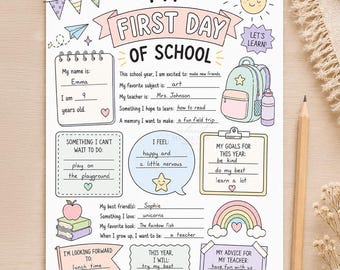 FIRST DAY
OF SCHOOL
LET'S
LEARN!
My name is:
Emma
I am 9
years old.
This school year, I am excited to: make new friends
My favorite subject is: art
My teacher is: Mrs. Johnson
Something I hope to learn: how to read
A memory I want to make: a fun field trip
SOMETHING I CAN'T
WAIT TO DO:
play on
the playground
I FEEL:
happy and
a little nervous
MY GOALS FOR
THIS YEAR:
be kind
do my best
learn a lot
My best friend(s): Sophie
Something I love: unicorns
My favorite book: The Rainbow Fish
When I grow up, I want to be: a teacher
I'M LOOKING FORWARD
TO:
lunch time
THIS YEAR,
I WILL:
try my best
MY ADVICE FOR
MY TEACHER:
have fun with us